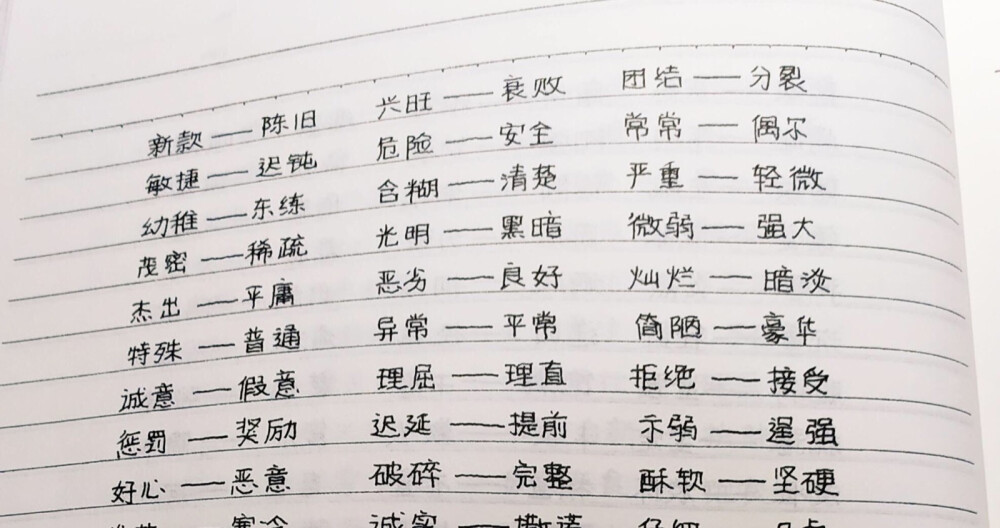 新款——陈旧 兴旺——衰败 团结——分裂
敏捷——迟钝 危险——安全 常常——偶尔
幼稚——东练 含糊——清楚 严重——轻微
茂密——稀疏 光明——黑暗 微弱——强大
杰出——平庸 恶劣——良好 灿烂——暗淡
特殊——普通 异常——平常 简陋——豪华
诚意——假意 理屈——理直 拒绝——接受
惩罚——奖励 迟延——提前 示弱——逞强
好心——恶意 破碎——完整 酥软——坚硬
寒冷 诚实——撒谎 仔细——